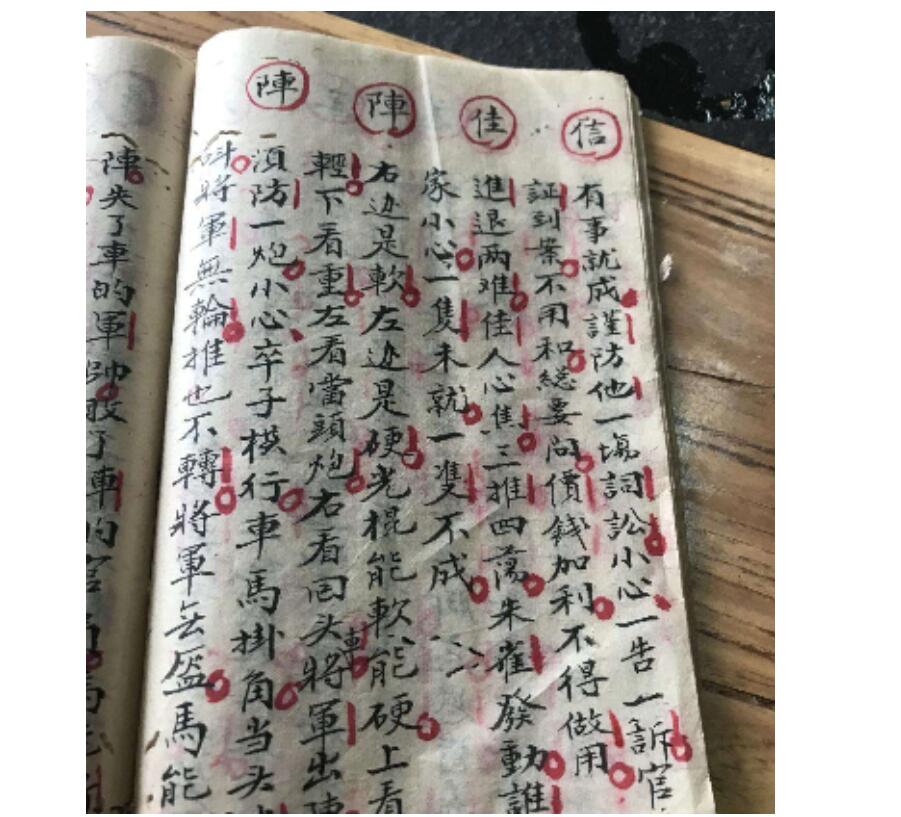 信
有事就成謹防他一塲詞訟小心一告一訴官
証到案不用和総要问價錢加利不得做用
佳
進退两难佳人心焦三推四蕩朱雀發動誰
家小心一隻未就一雙不成
陣
右边是軟左边是硬光棍能軟能硬上看
輕下看重左看當頭炮右看回头車將軍出陣
陣
須防一炮小心卒子横行車馬掛角当头
將軍無輪推也不轉將軍無盔馬能
陣失了車的軍帥敗了車的官